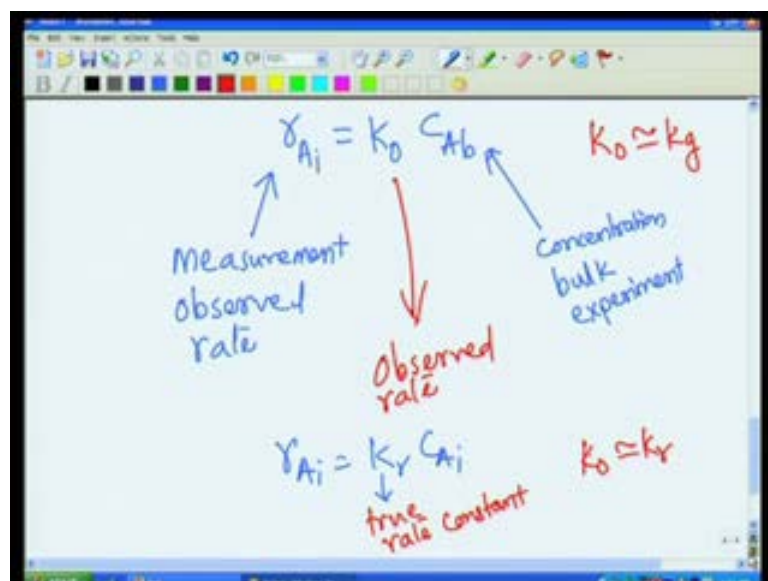 r_Ai = k₀ C_Ab k₀ ≃ kg
Measurement
observed
rate
Concentration
bulk
experiment
Observed
rate
r_Ai = k_r C_Ai k₀ ≃ k_r
true
rate constant